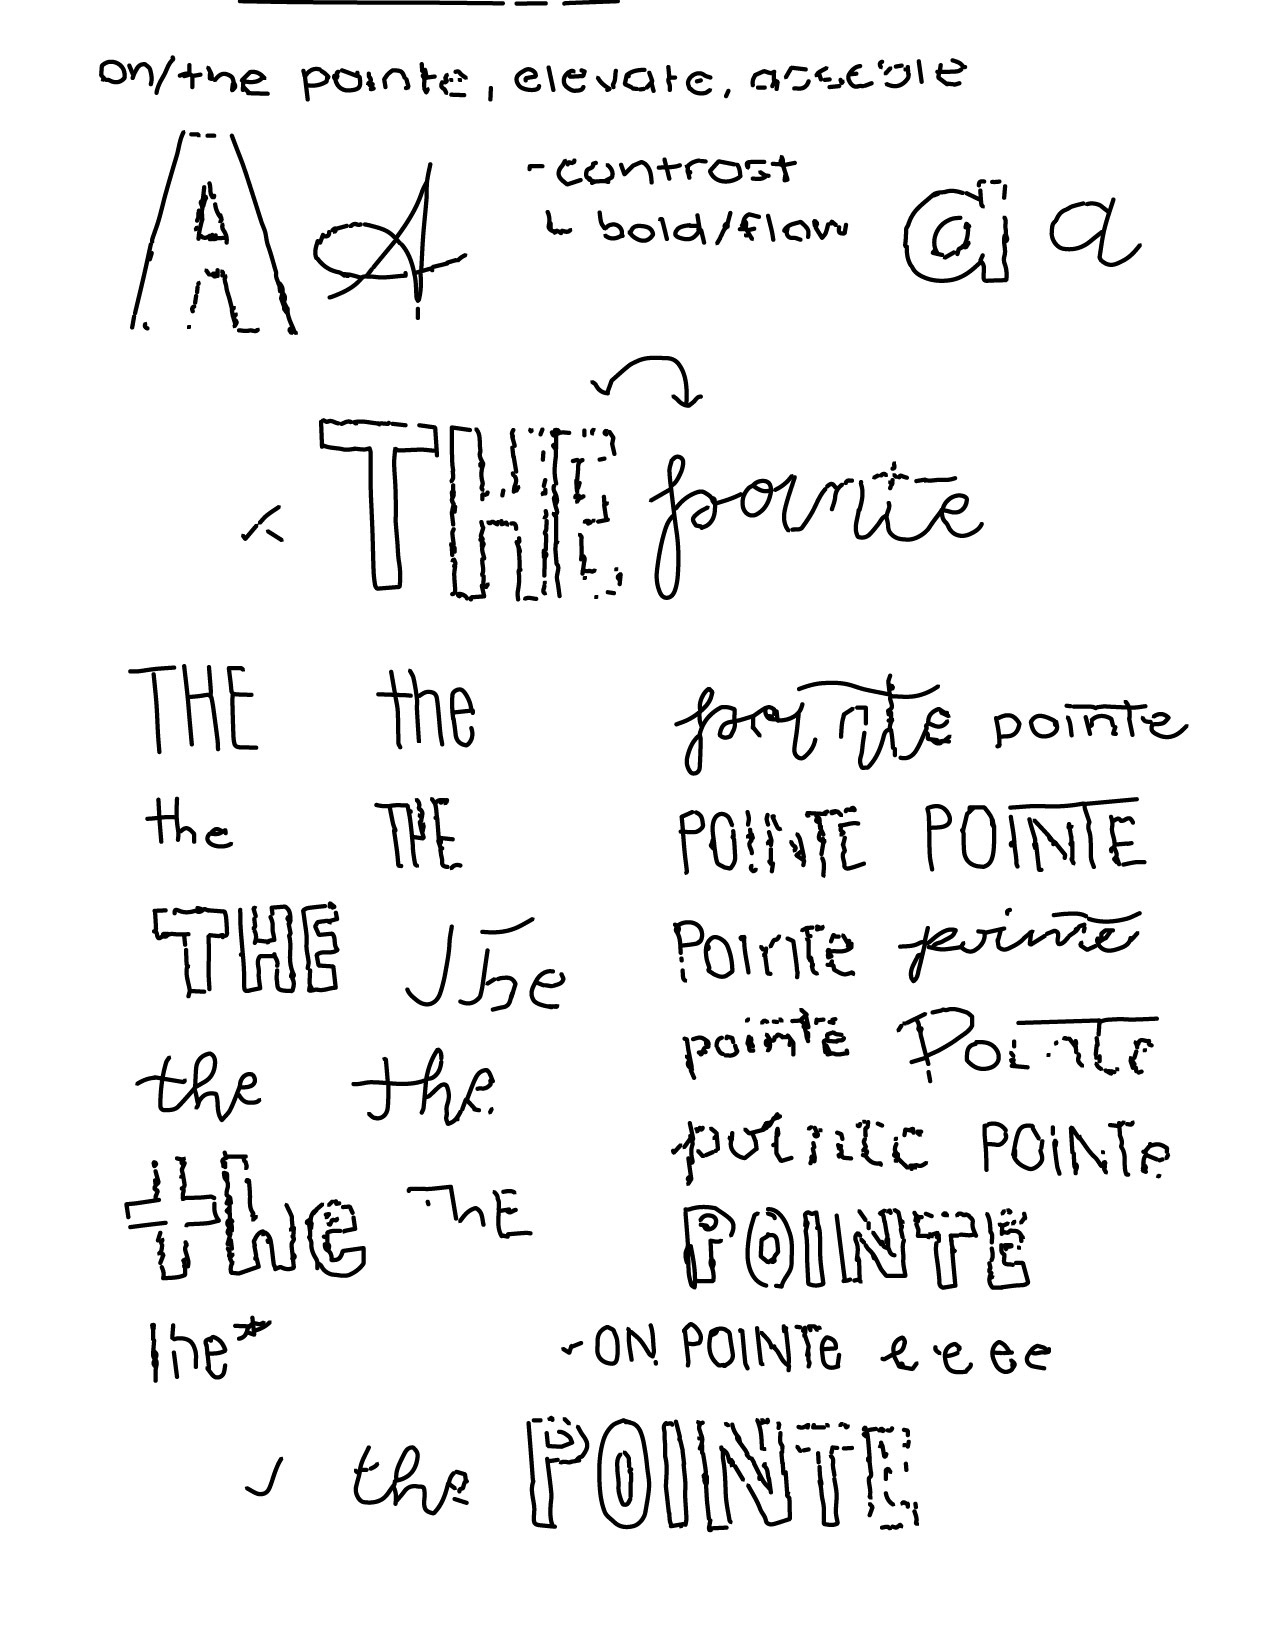 on/the pointe, elevate, assecole
A A - contrast a a
↳ bold/flow
THE pointe
THE the pointe pointe
the THE POINTE POINTE
THE The Pointe pointe
the the pointe Pointe
the THE pointe POINTe
the* POINTE
- ON POINTe e e e e
✓ the POINTE